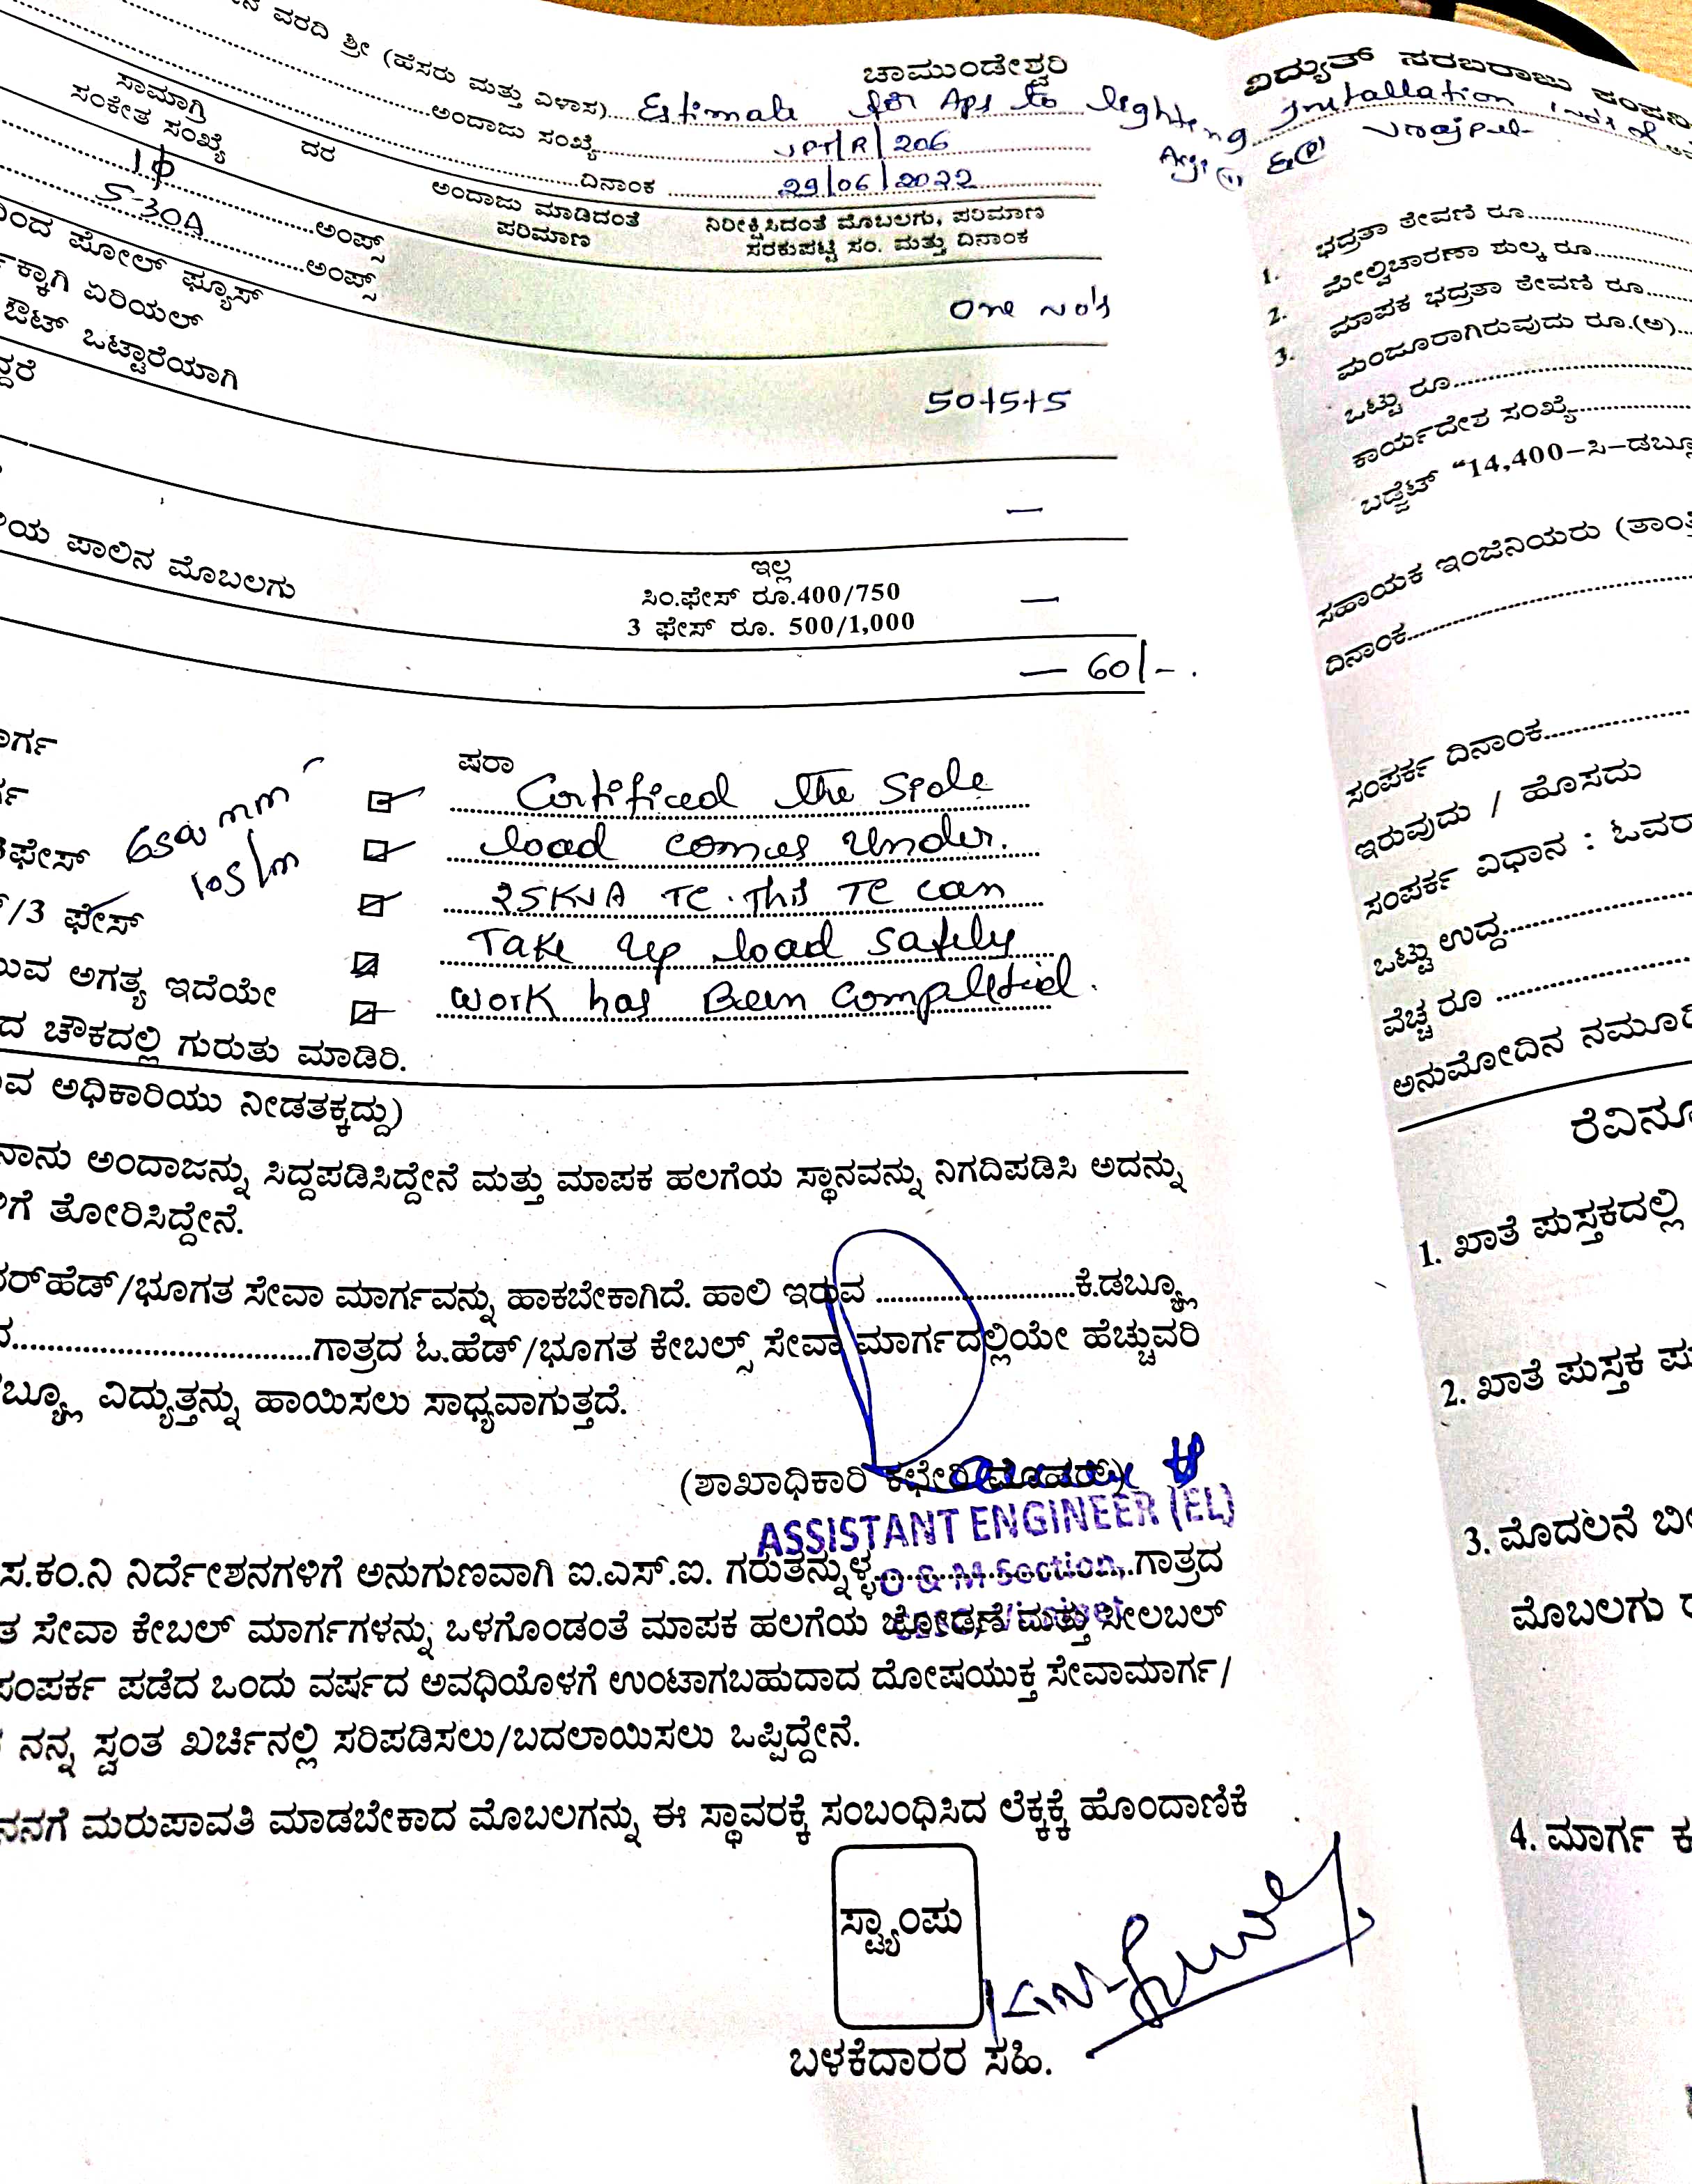 ಚಾಮುಂಡೇಶ್ವರಿ ವಿದ್ಯುತ್ ಸರಬರಾಜು
ವರದಿ ಶ್ರೀ (ಹೆಸರು ಮತ್ತು ವಿಳಾಸ) Estimate for Aps to lighting Installation
ಅಂದಾಜು ಸಂಖ್ಯೆ VPT/R/206
ದಿನಾಂಕ 29/06/2022
ಸಾಮಾಗ್ರಿ
ಸಂಕೇತ ಸಂಖ್ಯೆ
ದರ
ಅಂದಾಜು ಮಾಡಿದಂತೆ
ಪರಿಮಾಣ
ನಿರೀಕ್ಷಿಸಿದಂತೆ ಮೊಬಲಗು, ಪರಿಮಾಣ
ಸರಕುಪಟ್ಟಿ ಸಂ. ಮತ್ತು ದಿನಾಂಕ
1φ ಅಂಪ್ಸ್
5-30A ಅಂಪ್ಸ್
ಪೋಲ್ ಫ್ಯೂಸ್
ಏರಿಯಲ್
ಔಟ್ ಒಟ್ಟಾರೆಯಾಗಿ
One No's
50+5+5
—
ಪಾಲಿನ ಮೊಬಲಗು
ಇಲ್ಲ
ಸಿಂ.ಫೇಸ್ ರೂ.400/750
3 ಫೇಸ್ ರೂ. 500/1,000
—
— 60/-.
ಷರಾ
Certificed the Spole
load comes Under.
25KVA TC. This TC can
Take up load safely
work has Been Completed.
/3 ಫೇಸ್
ಅಗತ್ಯ ಇದೆಯೇ
ಚೌಕದಲ್ಲಿ ಗುರುತು ಮಾಡಿರಿ.
ಅಧಿಕಾರಿಯು ನೀಡತಕ್ಕದ್ದು)
ನಾನು ಅಂದಾಜನ್ನು ಸಿದ್ದಪಡಿಸಿದ್ದೇನೆ ಮತ್ತು ಮಾಪಕ ಹಲಗೆಯ ಸ್ಥಾನವನ್ನು ನಿಗದಿಪಡಿಸಿ ಅದನ್ನು
ತೋರಿಸಿದ್ದೇನೆ.
ಹೆಡ್/ಭೂಗತ ಸೇವಾ ಮಾರ್ಗವನ್ನು ಹಾಕಬೇಕಾಗಿದೆ. ಹಾಲಿ ಇರುವ ಕೆ.ಡಬ್ಲ್ಯೂ
ಗಾತ್ರದ ಓ.ಹೆಡ್/ಭೂಗತ ಕೇಬಲ್ಸ್ ಸೇವಾ ಮಾರ್ಗದಲ್ಲಿಯೇ ಹೆಚ್ಚುವರಿ
ವಿದ್ಯುತ್ತನ್ನು ಹಾಯಿಸಲು ಸಾಧ್ಯವಾಗುತ್ತದೆ.
(ಶಾಖಾಧಿಕಾರಿ ಕಛೇರಿ ಮೊಹರ್)
ASSISTANT ENGINEER (EL)
O & M Section,
ಸ.ಕಂ.ನಿ ನಿರ್ದೇಶನಗಳಿಗೆ ಅನುಗುಣವಾಗಿ ಐ.ಎಸ್.ಐ. ಗುರುತನ್ನುಳ್ಳ ಗಾತ್ರದ
ಸೇವಾ ಕೇಬಲ್ ಮಾರ್ಗಗಳನ್ನು ಒಳಗೊಂಡಂತೆ ಮಾಪಕ ಹಲಗೆಯ ಜೋಡಣೆ ಮತ್ತು ಸೀಲಬಲ್
ಸಂಪರ್ಕ ಪಡೆದ ಒಂದು ವರ್ಷದ ಅವಧಿಯೊಳಗೆ ಉಂಟಾಗಬಹುದಾದ ದೋಷಯುಕ್ತ ಸೇವಾಮಾರ್ಗ/
ನನ್ನ ಸ್ವಂತ ಖರ್ಚಿನಲ್ಲಿ ಸರಿಪಡಿಸಲು/ಬದಲಾಯಿಸಲು ಒಪ್ಪಿದ್ದೇನೆ.
ನನಗೆ ಮರುಪಾವತಿ ಮಾಡಬೇಕಾದ ಮೊಬಲಗನ್ನು ಈ ಸ್ಥಾವರಕ್ಕೆ ಸಂಬಂಧಿಸಿದ ಲೆಕ್ಕಕ್ಕೆ ಹೊಂದಾಣಿಕೆ
ಸ್ಟ್ಯಾಂಪು
ಬಳಕೆದಾರರ ಸಹಿ.
1. ಭದ್ರತಾ ಠೇವಣಿ ರೂ
2. ಮೇಲ್ವಿಚಾರಣಾ ಶುಲ್ಕ ರೂ
3. ಮಾಪಕ ಭದ್ರತಾ ಠೇವಣಿ ರೂ
ಮಂಜೂರಾಗಿರುವುದು ರೂ.(ಅ)
ಒಟ್ಟು ರೂ
ಕಾರ್ಯದೇಶ ಸಂಖ್ಯೆ
ಬಡ್ಜೆಟ್ "14,400-ಸಿ-ಡಬ್ಲ್ಯೂ
ಸಹಾಯಕ ಇಂಜಿನಿಯರು
ದಿನಾಂಕ
ಸಂಪರ್ಕ ದಿನಾಂಕ
ಇರುವುದು / ಹೊಸದು
ಸಂಪರ್ಕ ವಿಧಾನ :
ಒಟ್ಟು ಉದ್ದ
ವೆಚ್ಚ ರೂ
ಅನುಮೋದಿನ
1. ಖಾತೆ ಪುಸ್ತಕದಲ್ಲಿ
2. ಖಾತೆ ಪುಸ್ತಕ
3. ಮೊದಲನೆ
ಮೊಬಲಗು
4. ಮಾರ್ಗ